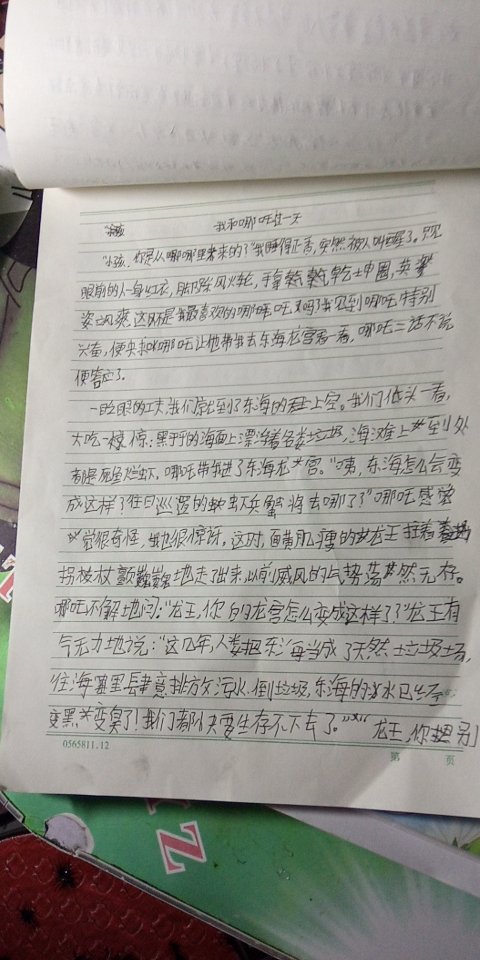 我和哪吒过一天
"小孩,你是从哪哪里来的?"我睡得正香,突然被人叫醒了。只见
眼前的人一身红衣,脚踩风火轮,手拿乾乾乾坤圈,英
姿飒爽,这不是我最喜欢的哪吒吗?我见到哪吒特别
兴奋,便央求哪吒让他带我去东海龙宫看一看,哪吒二话不说
便答应了。
一眨眼的工夫,我们就到了东海的上空。我们低头一看,
大吃一惊:黑乎乎的海面上漂浮着各类垃圾,海滩上到处
都是死鱼烂虾。哪吒带我进了东海龙宫。"咦,东海怎么会变
成这样了?往日巡逻的虾兵蟹将去哪了?"哪吒感觉
觉很奇怪,我也很惊讶,这时,面黄肌瘦的龙王拄着
拐杖颤巍巍地走了出来,以前威风的气势荡然无存。
哪吒不解地问:"龙王,你的龙宫怎么变成这样了?"龙王有
气无力地说:"这几年,人类把东海当成了天然垃圾场,
往海里肆意排放污水,倒垃圾,东海的水已经
变黑变臭了!我们都快要生存不下去了。""龙王,你把别
0565811.12
第 页
Z